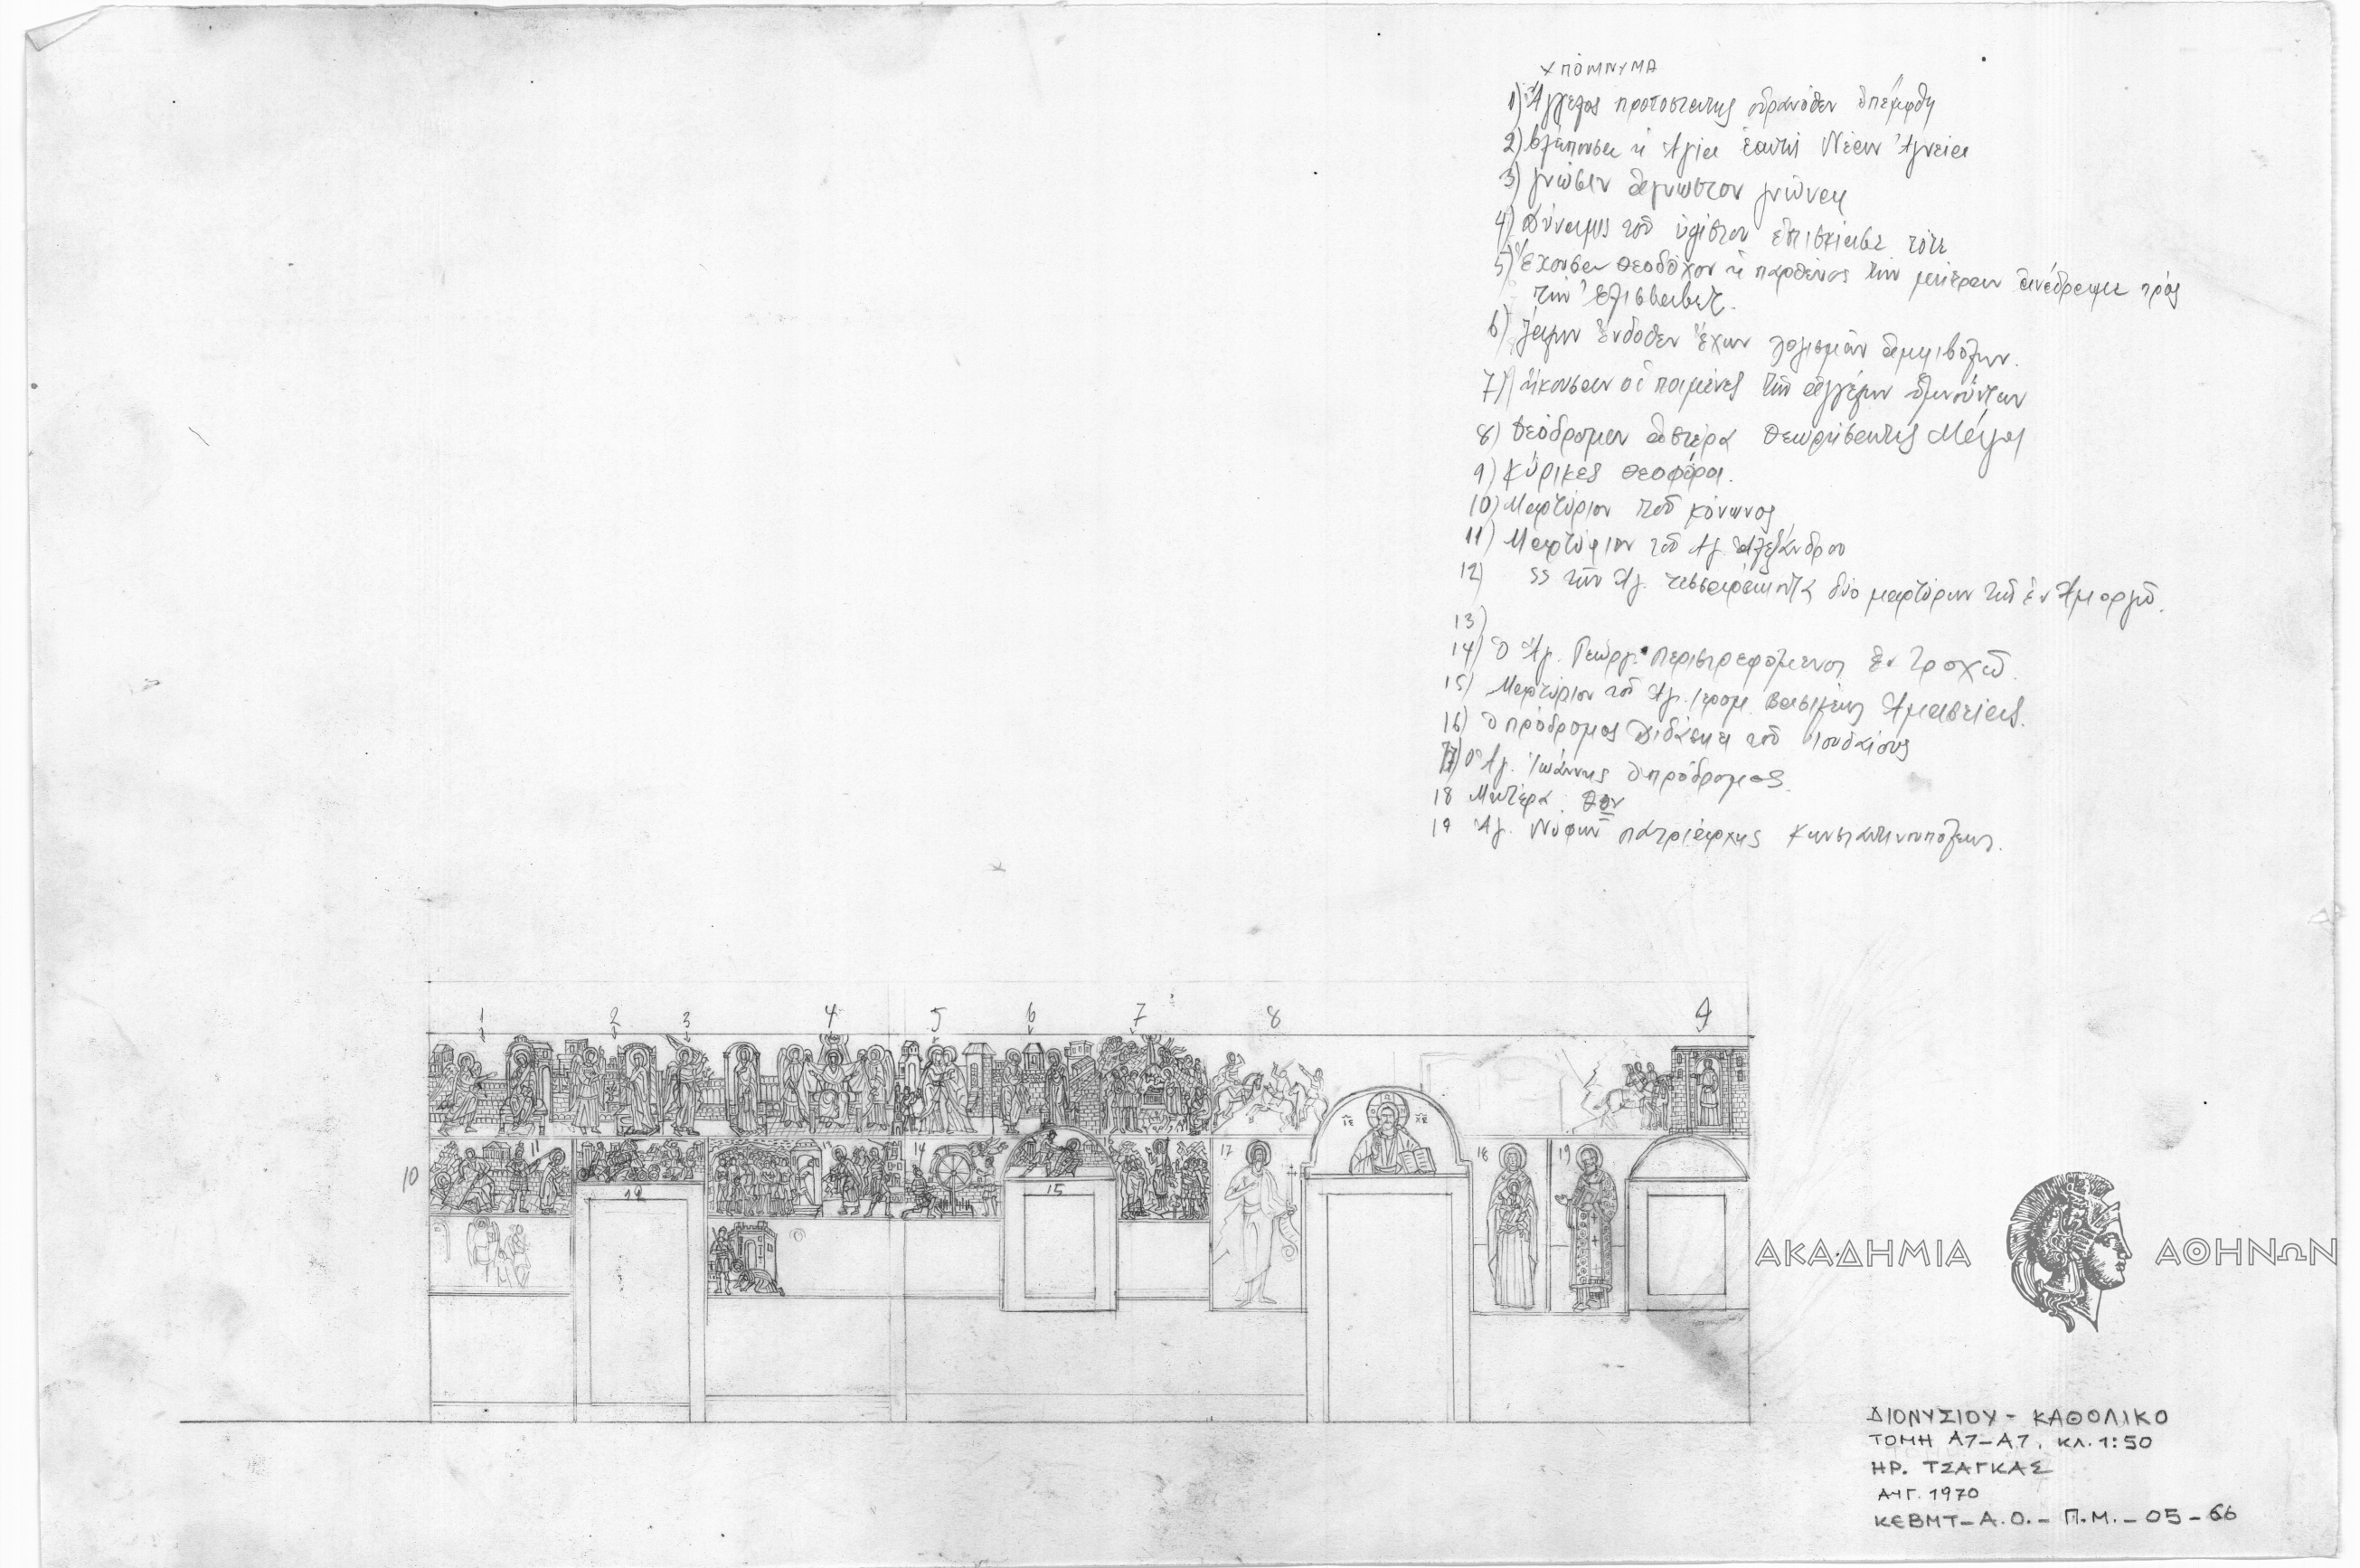 ΥΠΟΜΝΥΜΑ
1) Ἄγγελος προτοστατης οὐρανόθεν ἐπέμφθη
2) Βλέπουσα ἡ Ἁγία ἑαυτὴ Νέαν Ἁγνεία
3) γνῶσιν ἄγνωστον γνῶναι
4) Δύναμις τοῦ ὑψίστου ἐπισκίασε τότε
5) Ἔχουσα Θεοδόχον ἡ παρθένος τὴν μήτραν ἀνέδραμε πρὸς
τὴν Ἐλισσάβετ.
6) Ζάλην ἔνδοθεν ἔχων λογισμῶν ἀμφιβόλων.
7) ἤκουσαν οἱ ποιμένες τῶν ἀγγέλων ὑμνούντων
8) Θεόδρομον ἀστέρα Θεωρήσαντες Μάγοι
9) Κύρικες Θεοφόροι.
10) Μαρτύριον τοῦ Κόνωνος
11) Μαρτύριον τοῦ Ἁγ. Ἀλεξάνδρου
12) SS τῶν Ἁγ. τεσσαράκοντα δύο μαρτύρων τῶν ἐν Ἀμοργῶ.
13)
14) Ὁ Ἁγ. Γεώργ. περιστρεφόμενος ἐν τροχῶ.
15) Μαρτύριον τοῦ Ἁγ. Ἱερομ. Βασιλέως Ἀμασείας.
16) Ὁ πρόδρομος Διδάσκει τοῦ Ἰουδαίους
17) Ὁ Ἁγ. Ἰωάννης ὁ πρόδρομος.
18 Μητέρα Θου
19 Ἁγ. Νύφων πατριάρχης Κωνσταντινουπόλεως.
1 2 3 4 5 6 7 8 9
10 11 12 13 14 15 17 18 19
ΙΣ ΧΣ
ΑΚΑΔΗΜΙΑ ΑΘΗΝΩΝ
ΔΙΟΝΥΣΙΟΥ - ΚΑΘΟΛΙΚΟ
ΤΟΜΗ Α7-Α7, ΚΛ. 1:50
ΗΡ. ΤΣΑΓΚΑΣ
ΑΥΓ. 1970
ΚΕΒΜΤ-Α.Ο.-Π.Μ.-05-66